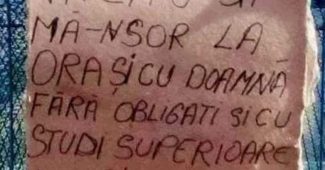 MĂ-NSOR LA
ORAȘ ȘI CU DOAMNĂ
FĂRĂ OBLIGATI ȘI CU
STUDI SUPERIOARE